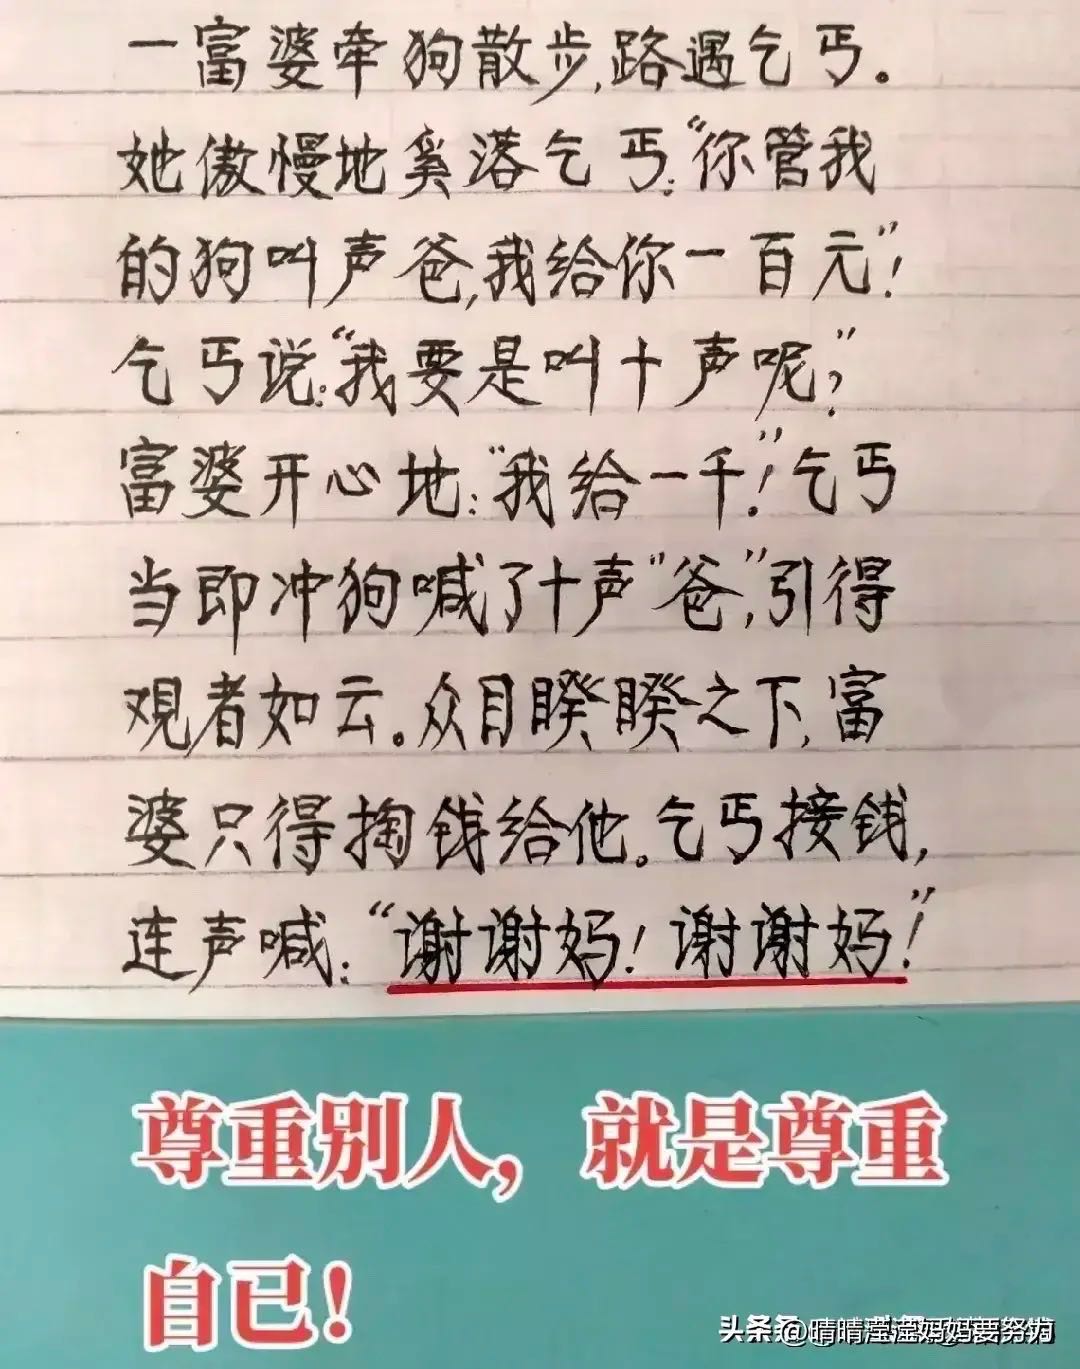 一富婆牵狗散步,路遇乞丐。
她傲慢地奚落乞丐:“你管我
的狗叫声爸,我给你一百元”!
乞丐说:“我要是叫十声呢”?
富婆开心地:“我给一千”!乞丐
当即冲狗喊了十声“爸”,引得
观者如云。众目睽睽之下,富
婆只得掏钱给他。乞丐接钱,
连声喊:“谢谢妈!谢谢妈”!
尊重别人,就是尊重
自已!
头条 @晴晴滢滢妈妈要努力